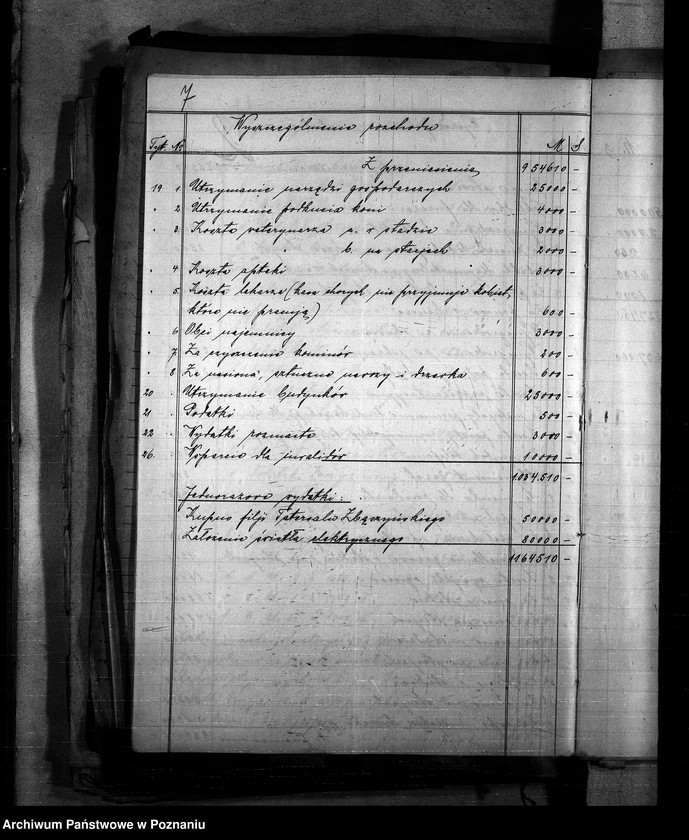 7
Wyszczególnienie rozchodu
Tyt. № M S
Z przeniesienia 954610 -
19 1 Utrzymanie narzędzi gospodarczych 25000 -
" 2 Utrzymanie podkucia koni 4000 -
" 3. Koszta weterynarza a. w stadzie 3000 -
b. na stacjach 2000 -
" 4 Koszta apteki 3000 -
" 5. Koszta lekarza (kasa chorych nie przyjmuje kobiet,
które nie pracują) 600 -
" 6 Obci najemnicy 3000 -
" 7. Za czyszczenie kominów 200 -
" 8 Za nasiona, sztuczne nawozy i drzewka 600 -
20 . Utrzymanie budynków 25000 -
21 . Podatki 500 -
22 . Wydatki rozmaite 3000 -
26. . Wsparcie dla inwalidów 10000 -
1.034.510 -
Jednorazowe wydatki:
Kupno filji Tatersalu Zbąszyńskiego 50000 -
Założenie światła elektrycznego 80000 -
1164510 -
Archiwum Państwowe w Poznaniu